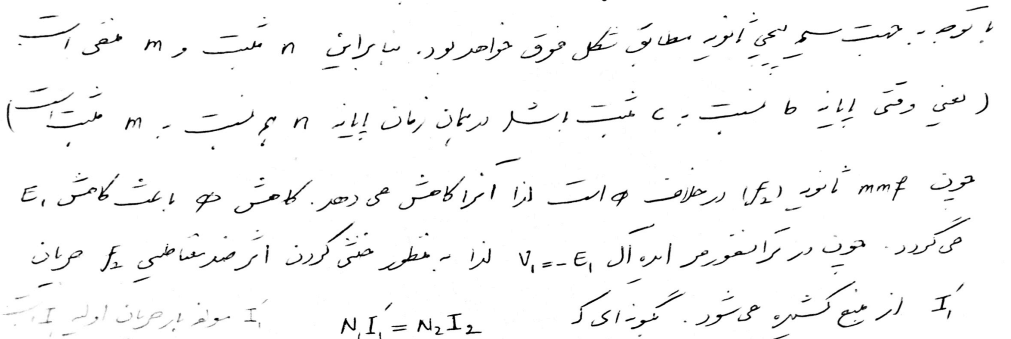 با توجه به جهت سیم پیچی ثانویه مطابق شکل فوق خواهد بود. بنابراین n مثبت و m منفی است
(یعنی وقتی پایانه b نسبت به c مثبت باشد در همان زمان پایانه n هم نسبت به m مثبت است)
چون mmf ثانویه (f₂) در خلاف φ است لذا آنرا کاهش می دهد. کاهش φ باعث کاهش E₁
می گردد. چون در ترانسفورمر ایده آل V₁=-E₁ لذا به منظور خنثی کردن اثر ضد مغناطیسی f₂ جریان
I₁′ از منبع کشیده می شود. بگونه ای که N₁I₁′=N₂I₂ I₁′ مولفه بار جریان اولیه I₁ است